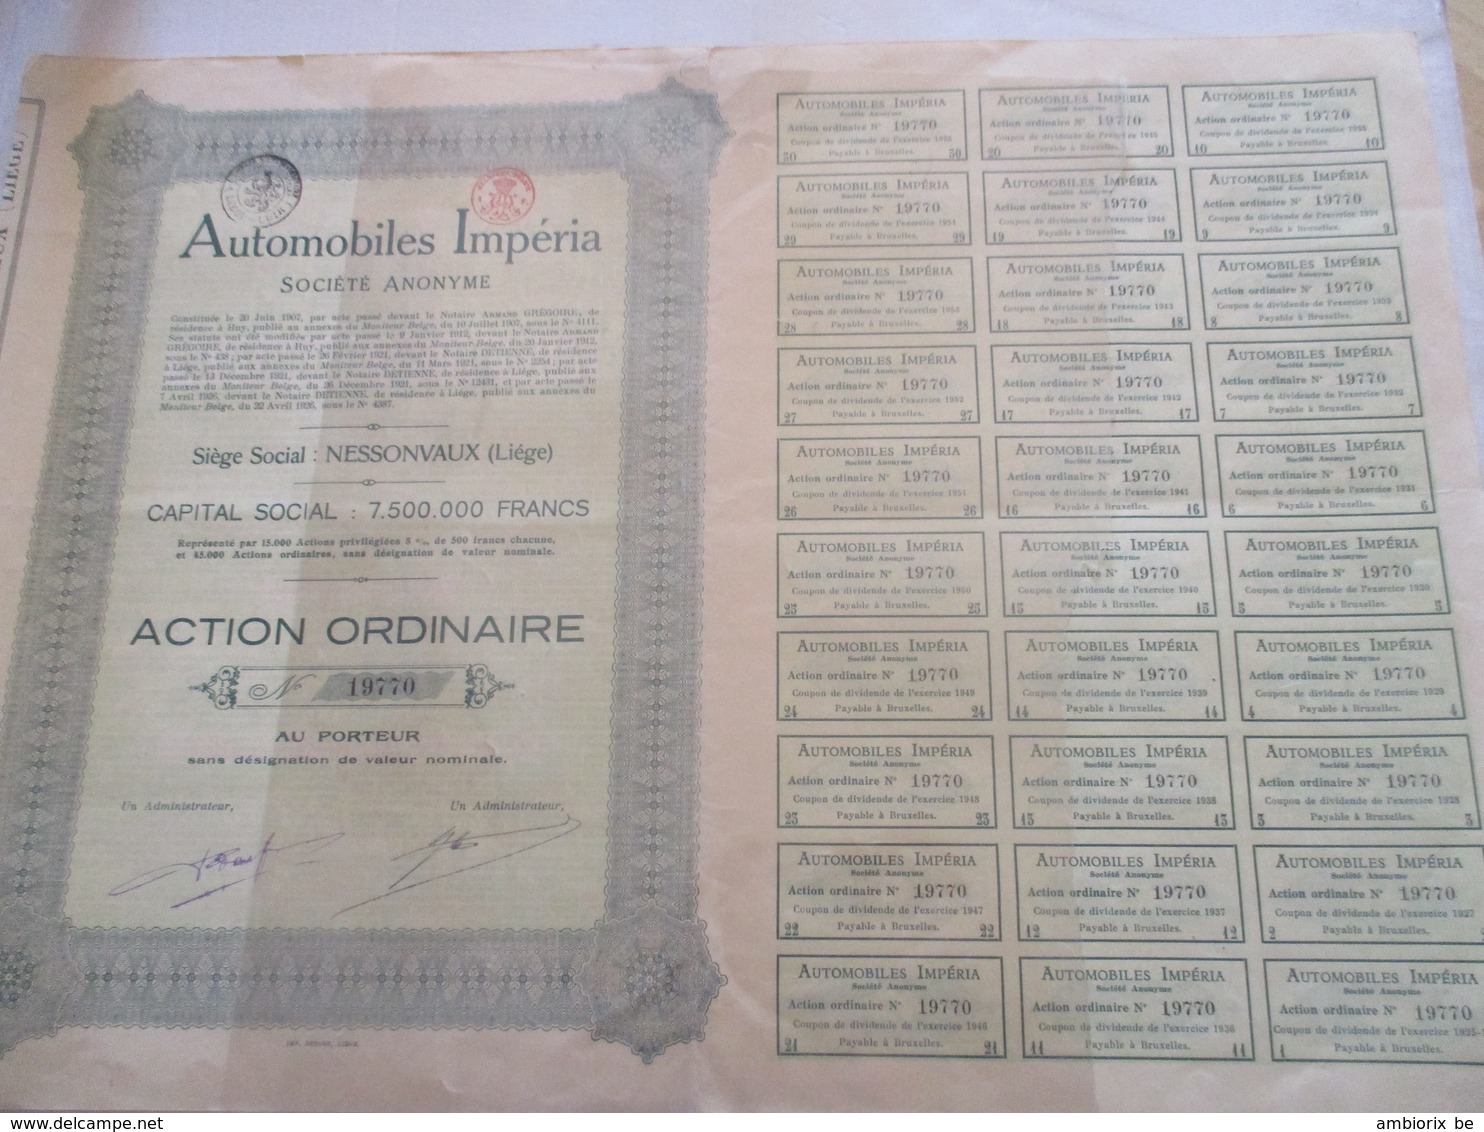 (LIÉGE)
Automobiles Impéria
SOCIÉTÉ ANONYME
Constituée le 20 Juin 1907, par acte passé devant le Notaire ARMAND GRÉGOIRE, de
résidence à Huy, publié au annexes du Moniteur Belge, du 10 Juillet 1907, sous le Nº 4141.
Ses statuts ont été modifiés par acte passé le 9 Janvier 1912, devant le Notaire ARMAND
GRÉGOIRE, de résidence à Huy, publié aux annexes du Moniteur Belge, du 20 Janvier 1912,
sous le Nº 438 ; par acte passé le 26 Février 1921, devant le Notaire DETIENNE, de résidence
à Liége, publié aux annexes du Moniteur Belge, du 11 Mars 1921, sous le Nº 2254 ; par acte
passé le 13 Décembre 1921, devant le Notaire DETIENNE, de résidence à Liége, publié aux
annexes du Moniteur Belge, du 26 Décembre 1921, sous le Nº 12431, et par acte passé le
7 Avril 1926, devant le Notaire DETIENNE, de résidence à Liége, publié aux annexes du
Moniteur Belge, du 22 Avril 1926, sous le Nº 4387.
Siège Social : NESSONVAUX (Liége)
CAPITAL SOCIAL : 7.500.000 FRANCS
Représenté par 15.000 Actions privilégiées 8 % de 500 francs chacune,
et 45.000 Actions ordinaires, sans désignation de valeur nominale.
ACTION ORDINAIRE
Nº 19770
AU PORTEUR
sans désignation de valeur nominale.
Un Administrateur, Un Administrateur,
AUTOMOBILES IMPÉRIA
Société Anonyme
Action ordinaire Nº 19770
Coupon de dividende de l'exercice 1955
30 Payable à Bruxelles. 30
AUTOMOBILES IMPÉRIA
Société Anonyme
Action ordinaire Nº 19770
Coupon de dividende de l'exercice 1945
20 Payable à Bruxelles. 20
AUTOMOBILES IMPÉRIA
Société Anonyme
Action ordinaire Nº 19770
Coupon de dividende de l'exercice 1935
10 Payable à Bruxelles. 10
AUTOMOBILES IMPÉRIA
Société Anonyme
Action ordinaire Nº 19770
Coupon de dividende de l'exercice 1954
29 Payable à Bruxelles. 29
AUTOMOBILES IMPÉRIA
Société Anonyme
Action ordinaire Nº 19770
Coupon de dividende de l'exercice 1944
19 Payable à Bruxelles. 19
AUTOMOBILES IMPÉRIA
Société Anonyme
Action ordinaire Nº 19770
Coupon de dividende de l'exercice 1934
9 Payable à Bruxelles. 9
AUTOMOBILES IMPÉRIA
Société Anonyme
Action ordinaire Nº 19770
Coupon de dividende de l'exercice 1953
28 Payable à Bruxelles. 28
AUTOMOBILES IMPÉRIA
Société Anonyme
Action ordinaire Nº 19770
Coupon de dividende de l'exercice 1943
18 Payable à Bruxelles. 18
AUTOMOBILES IMPÉRIA
Société Anonyme
Action ordinaire Nº 19770
Coupon de dividende de l'exercice 1933
8 Payable à Bruxelles. 8
AUTOMOBILES IMPÉRIA
Société Anonyme
Action ordinaire Nº 19770
Coupon de dividende de l'exercice 1952
27 Payable à Bruxelles. 27
AUTOMOBILES IMPÉRIA
Société Anonyme
Action ordinaire Nº 19770
Coupon de dividende de l'exercice 1942
17 Payable à Bruxelles. 17
AUTOMOBILES IMPÉRIA
Société Anonyme
Action ordinaire Nº 19770
Coupon de dividende de l'exercice 1932
7 Payable à Bruxelles. 7
AUTOMOBILES IMPÉRIA
Société Anonyme
Action ordinaire Nº 19770
Coupon de dividende de l'exercice 1951
26 Payable à Bruxelles. 26
AUTOMOBILES IMPÉRIA
Société Anonyme
Action ordinaire Nº 19770
Coupon de dividende de l'exercice 1941
16 Payable à Bruxelles. 16
AUTOMOBILES IMPÉRIA
Société Anonyme
Action ordinaire Nº 19770
Coupon de dividende de l'exercice 1931
6 Payable à Bruxelles. 6
AUTOMOBILES IMPÉRIA
Société Anonyme
Action ordinaire Nº 19770
Coupon de dividende de l'exercice 1950
25 Payable à Bruxelles. 25
AUTOMOBILES IMPÉRIA
Société Anonyme
Action ordinaire Nº 19770
Coupon de dividende de l'exercice 1940
15 Payable à Bruxelles. 15
AUTOMOBILES IMPÉRIA
Société Anonyme
Action ordinaire Nº 19770
Coupon de dividende de l'exercice 1930
5 Payable à Bruxelles. 5
AUTOMOBILES IMPÉRIA
Société Anonyme
Action ordinaire Nº 19770
Coupon de dividende de l'exercice 1949
24 Payable à Bruxelles. 24
AUTOMOBILES IMPÉRIA
Société Anonyme
Action ordinaire Nº 19770
Coupon de dividende de l'exercice 1939
14 Payable à Bruxelles. 14
AUTOMOBILES IMPÉRIA
Société Anonyme
Action ordinaire Nº 19770
Coupon de dividende de l'exercice 1929
4 Payable à Bruxelles. 4
AUTOMOBILES IMPÉRIA
Société Anonyme
Action ordinaire Nº 19770
Coupon de dividende de l'exercice 1948
23 Payable à Bruxelles. 23
AUTOMOBILES IMPÉRIA
Société Anonyme
Action ordinaire Nº 19770
Coupon de dividende de l'exercice 1938
13 Payable à Bruxelles. 13
AUTOMOBILES IMPÉRIA
Société Anonyme
Action ordinaire Nº 19770
Coupon de dividende de l'exercice 1928
3 Payable à Bruxelles. 3
AUTOMOBILES IMPÉRIA
Société Anonyme
Action ordinaire Nº 19770
Coupon de dividende de l'exercice 1947
22 Payable à Bruxelles. 22
AUTOMOBILES IMPÉRIA
Société Anonyme
Action ordinaire Nº 19770
Coupon de dividende de l'exercice 1937
12 Payable à Bruxelles. 12
AUTOMOBILES IMPÉRIA
Société Anonyme
Action ordinaire Nº 19770
Coupon de dividende de l'exercice 1927
2 Payable à Bruxelles.
AUTOMOBILES IMPÉRIA
Société Anonyme
Action ordinaire Nº 19770
Coupon de dividende de l'exercice 1946
21 Payable à Bruxelles. 21
AUTOMOBILES IMPÉRIA
Société Anonyme
Action ordinaire Nº 19770
Coupon de dividende de l'exercice 1936
11 Payable à Bruxelles. 11
AUTOMOBILES IMPÉRIA
Société Anonyme
Action ordinaire Nº 19770
Coupon de dividende de l'exercice 1925-
1 Payable à Bruxelles.
ambiorix be